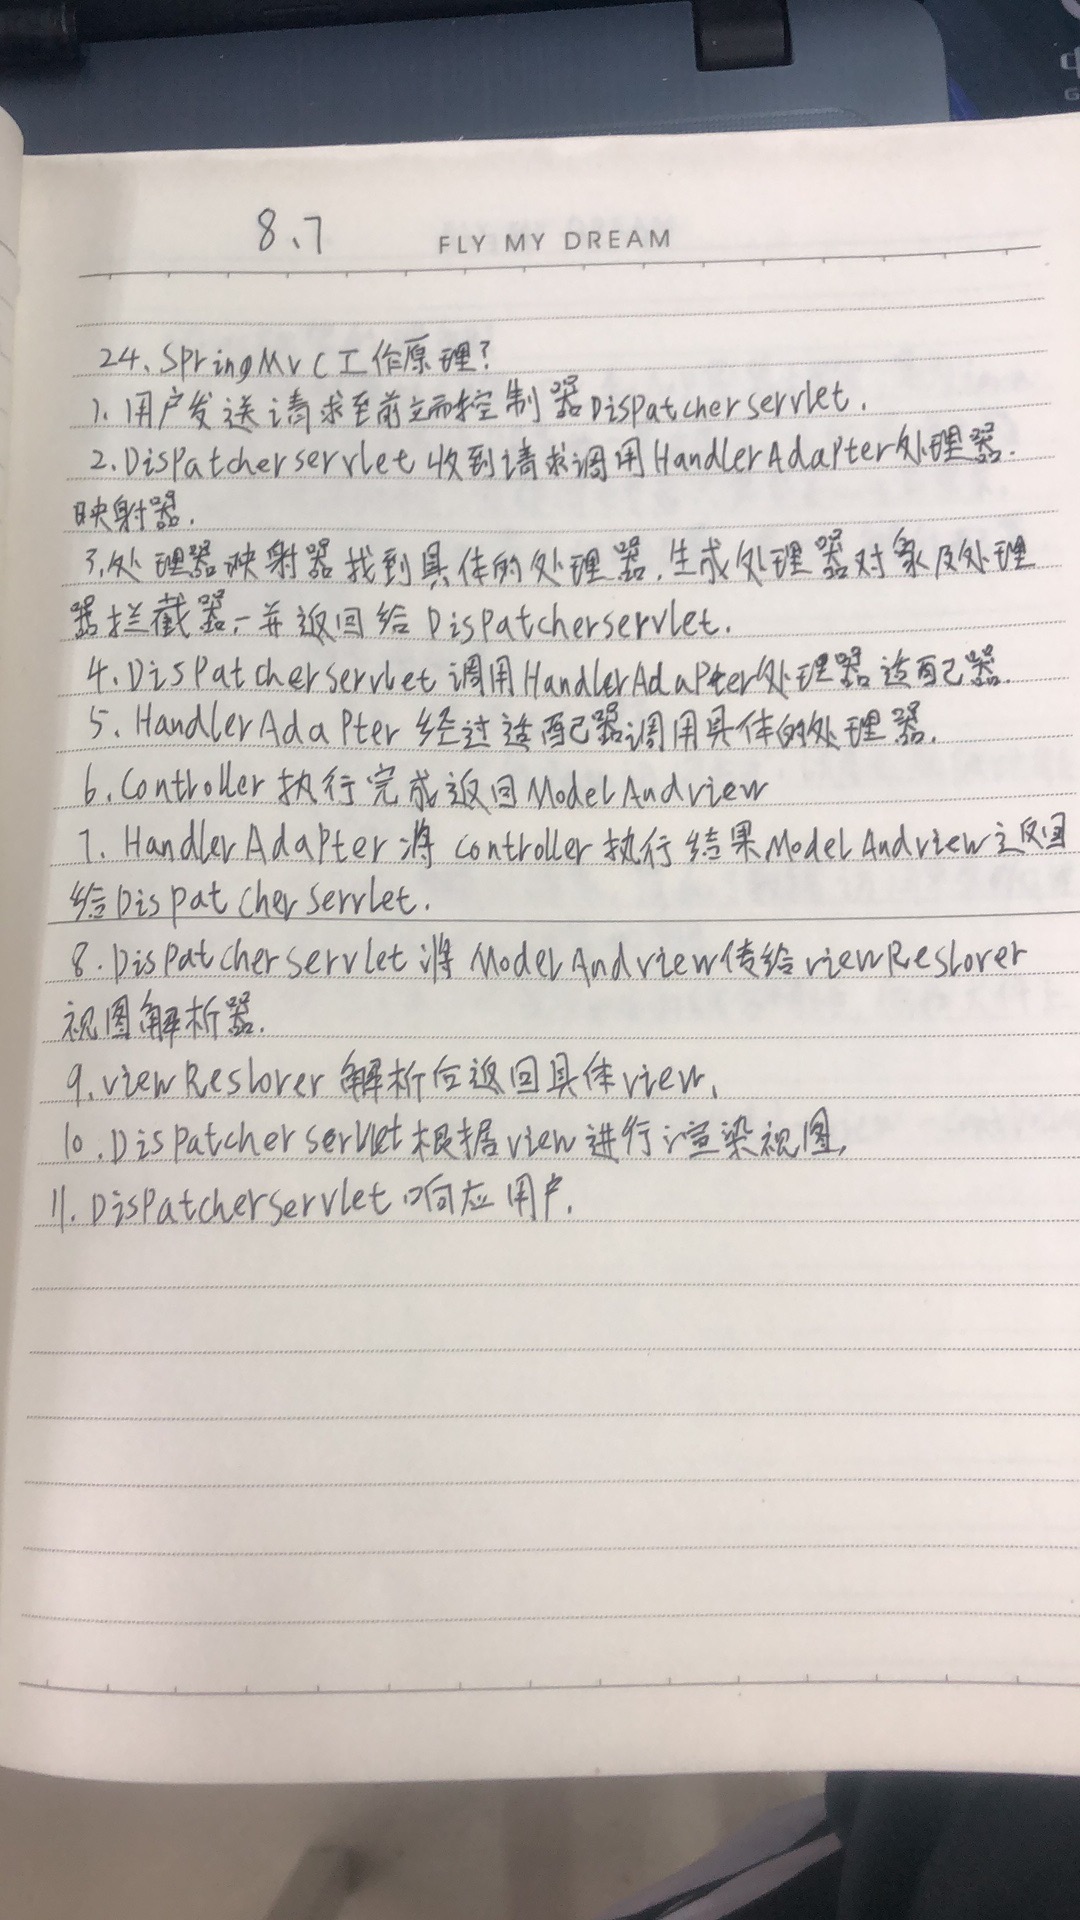 8、7
FLY MY DREAM
24、SpringMvC工作原理?
1. 用户发送请求至前端控制器DispatcherServlet.
2.Dispatcherservlet收到请求调用HandlerAdapter处理器.
映射器.
3,处理器映射器找到具体的处理器.生成处理器对象及处理
器拦截器,一并返回给 Dispatcherservlet.
4.Dispatcherservlet调用HandlerAdapter处理器适配器.
5、HandlerAdapter 经过适配器调用具体的处理器.
6、Controller 执行完成返回ModelAndview
7、HandlerAdapter将 Controller执行结果ModelAndview返回
给Dispatcherservlet.
8.Dispatcherservlet将 ModelAndview传给viewReslover
视图解析器.
9、viewReslover 解析后返回具体view、
10.Dispatcherservlet根据view进行渲染视图,
11.Dispatcherservlet响应用户.